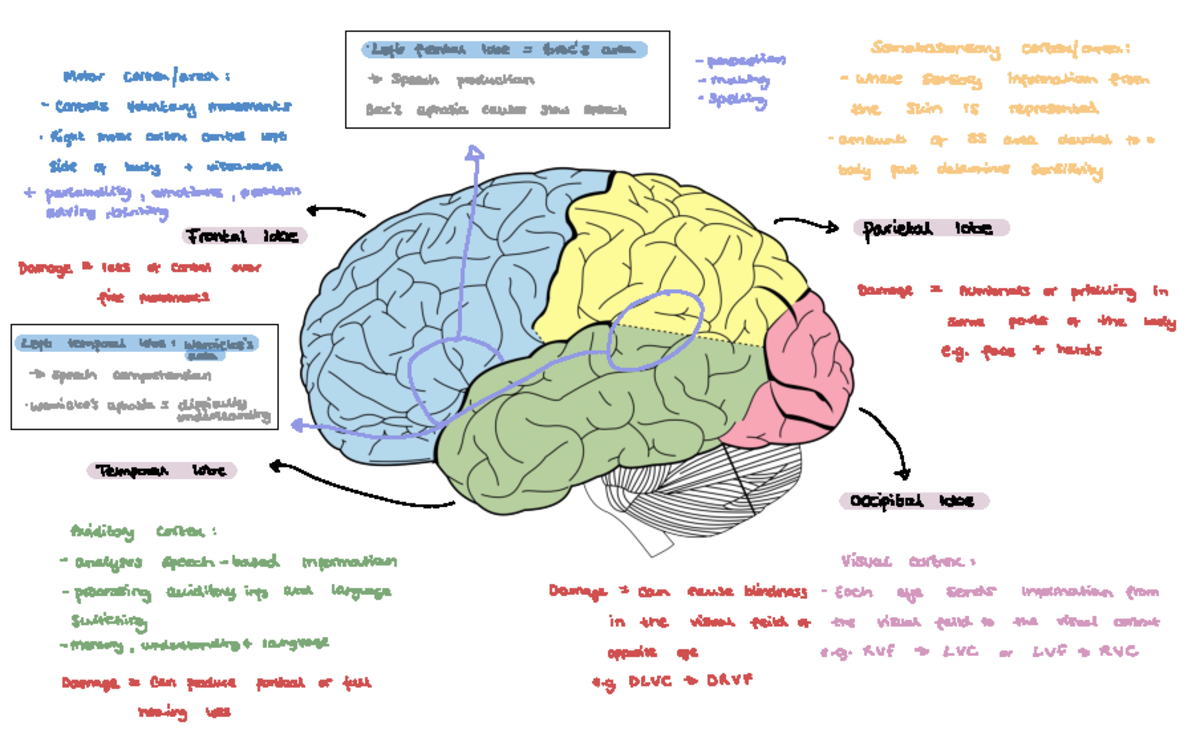 Left frontal lobe = Broc's area
→ Speech production
Broc's aphasia causes slow speech
- perception
- making
- spelling
Somatosensory cortex/area:
- where sensory information from
the skin is represented
- amount of SS area devoted to a
body part determines sensitivity
Motor cortex/area:
- controls voluntary movements
· Right motor cortex control left
side of body + viceversa
+ personality, emotions, problem
solving,
Frontal lobe
Damage = loss of control over
fine movements
Parietal lobe
Damage = numbness or prickling in
some parts of the body
e.g. face + hands
Left temporal lobe: Wernicke's
area
→ Speech comprehension
· Wernicke's aphasia = difficulty
understanding
Temporal lobe
Occipital lobe
Auditory cortex:
- analyses speech-based information
- processing auditory info and language
switching
- memory, understanding + language
Damage = Can produce partial or full
hearing loss
Damage = can cause blindness
in the visual feild of
opposite eye
e.g DLVC → DRVF
Visual cortex:
- Each eye sends information from
the visual feild to the visual cortext
e.g. RVF → LVC or LVF → RVC